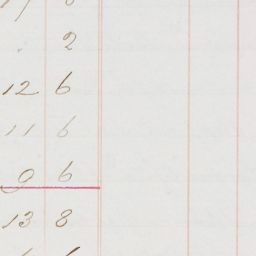 2
12 6
11 6
9 6
13 8